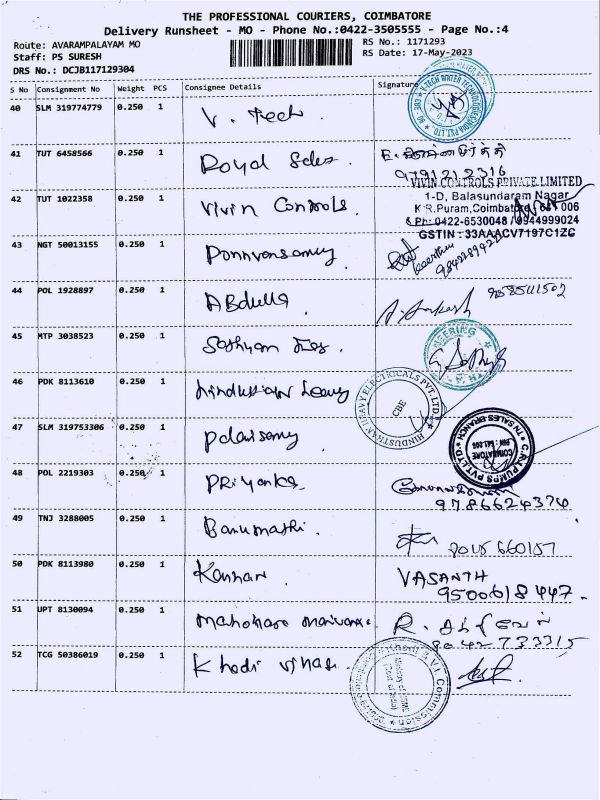 THE PROFESSIONAL COURIERS, COIMBATORE
Delivery Runsheet - MO - Phone No.:0422-3505555 - Page No.:4
Route: AVARAMPALAYAM MO
RS No.: 1171293
Staff: PS SURESH
RS Date: 17-May-2023
DRS No.: DCJB117129304
S No Consignment No Weight PCS Consignee Details Signature
40 SLM 319774779 0.250 1 V. Tech
41 TUT 6458566 0.250 1 Royal Sales
9791212316
42 TUT 1022358 0.250 1 Vivin Controls
VIVIN CONTROLS PRIVATE LIMITED
1-D, Balasundaram Nagar
K.R.Puram, Coimbatore 641 006
Ph: 0422-6530048 / 0944999024
GSTIN : 33AAACV7197C1ZC
43 NGT 50013155 0.250 1 Ponnvansamy
44 POL 1928897 0.250 1 Abdulla
45 MTP 3038523 0.250 1 Sathyam
46 PDK 8113610 0.250 1 hindustan Heavy
HINDUSTHAN HEAVY ELECTRICALS PVT. LTD.
CBE
47 SLM 319753306 0.250 1
C.R.I. PUMPS PVT. LTD.
TN SALES BRANCH
COIMBATORE
48 POL 2219303 0.250 1 Priyanka
9786624374
49 TNJ 3288005 0.250 1 Banumathi
50 PDK 8113980 0.250 1 Kannan VASANTH
9500618447
51 UPT 8130094 0.250 1
52 TCG 50386019 0.250 1 Khadi